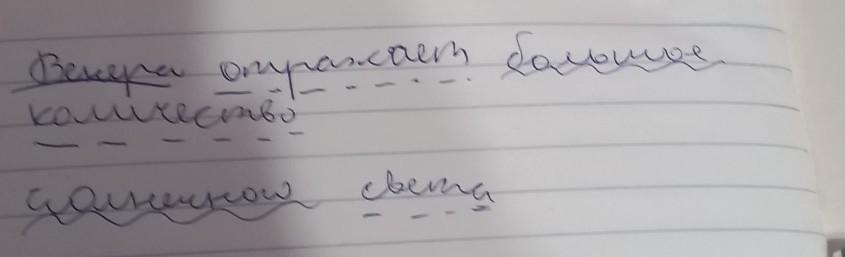 Венера отражает большое
количество
солнечного света